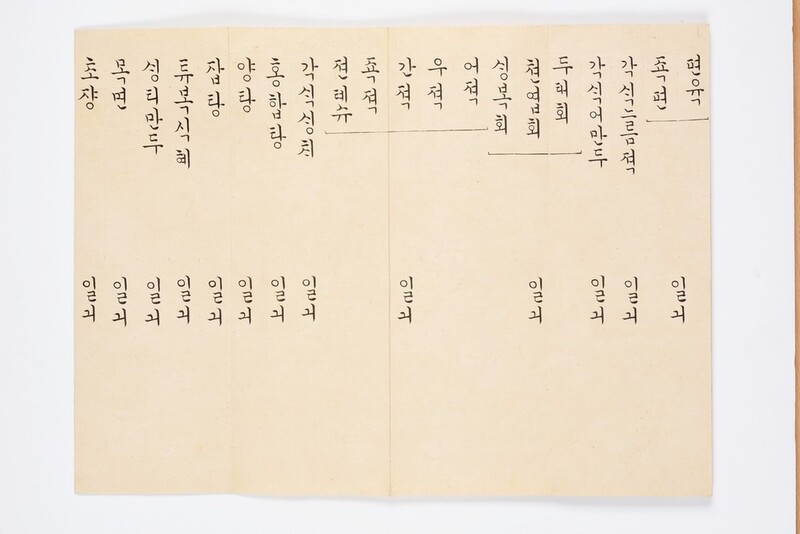 편육
죡편
일긔
각식느름젹 일긔
각식어만두 일긔
두태회
쳔엽회 일긔
싱복회
어젹
우젹
간젹 일긔
죡젹
젼톄슈
각식싱치 일긔
홍합탕 일긔
양탕 일긔
잡탕 일긔
튜복식혜 일긔
싱티만두 일긔
목면 일긔
초쟝 일긔